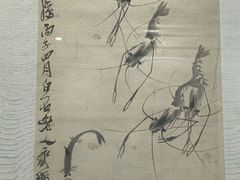 丙子四月白石老人